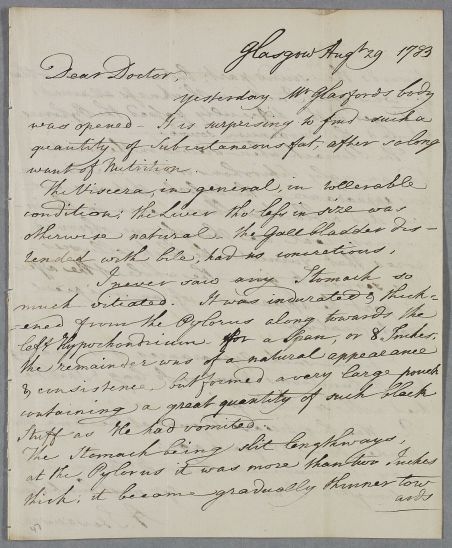 Glasgow Augt 29 1783
Dear Doctor,
Yesterday Mr Glasfords body
was opened - It is surprising to find such a
quantity of Subcutaneous fat, after so long
want of Nutrition.
The Viscera, in general, in tollerable
condition; the Liver tho' less in size was
otherwise natural the Gall bladder dis-
tended with bile, had no concretions,
I never saw any Stomach so
much vitiated. It was indurated & thick-
ened from the Pylorus along towards the
left Hypochondrium for a Span, or 8 Inches,
the remainder was of a natural appearance
& consistence, but formed a very large pouch
containing a great quantity of such black
stuff as He had vomited.
The Stomach being slit lengthways,
at the Pylorus it was more than two Inches
thick; it became gradually thinner tow
ards